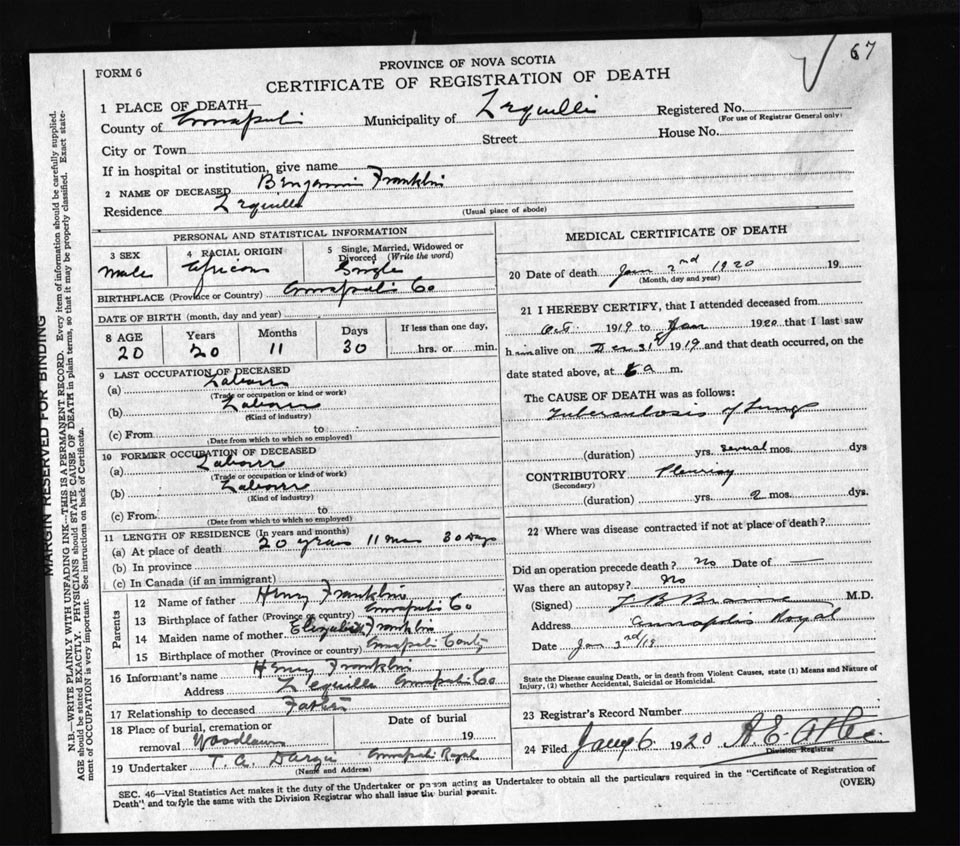 67
FORM 6
PROVINCE OF NOVA SCOTIA
CERTIFICATE OF REGISTRATION OF DEATH
1 PLACE OF DEATH—
County of Annapolis Municipality of Lequille Registered No.
(For use of Registrar General only)
City or Town Street House No.
If in hospital or institution, give name
2 NAME OF DECEASED Benjamin Franklin
Residence Lequille
(Usual place of abode)
PERSONAL AND STATISTICAL INFORMATION
3 SEX Male
4 RACIAL ORIGIN African
5 Single, Married, Widowed or Divorced (Write the word) Single
BIRTHPLACE (Province or Country) Annapolis Co
DATE OF BIRTH (month, day and year)
8 AGE Years Months Days If less than one day,
20 20 11 30 hrs. or min.
9 LAST OCCUPATION OF DECEASED
(a) Labourer
(Trade or occupation or kind of work)
(b) Labourer
(Kind of industry)
(c) From to
(Date from which to which so employed)
10 FORMER OCCUPATION OF DECEASED
(a) Labourer
(Trade or occupation or kind of work)
(b) Labourer
(Kind of industry)
(c) From to
(Date from which to which so employed)
11 LENGTH OF RESIDENCE (In years and months)
(a) At place of death 20 years 11 mos 30 days
(b) In province
(c) In Canada (if an immigrant)
Parents
12 Name of father Henry Franklin
13 Birthplace of father (Province or country) Annapolis Co
14 Maiden name of mother Elizabeth Franklin
15 Birthplace of mother (Province or country) Annapolis County
16 Informant's name Henry Franklin
Address Lequille Annapolis Co
17 Relationship to deceased Father
18 Place of burial, cremation or removal Woodlawn Date of burial 19
19 Undertaker T. A. Annapolis Royal
(Name and Address)
MEDICAL CERTIFICATE OF DEATH
20 Date of death Jan 2nd 1920 19
(Month, day and year)
21 I HEREBY CERTIFY, that I attended deceased from
Oct 1919 to Jan 1920 that I last saw
h im alive on Dec 31st 1919 and that death occurred, on the
date stated above, at a m.
The CAUSE OF DEATH was as follows:
Tuberculosis of lung
(duration) yrs. several mos. dys
CONTRIBUTORY Pleurisy
(Secondary)
(duration) yrs. 2 mos. dys.
22 Where was disease contracted if not at place of death?
Did an operation precede death? No Date of —
Was there an autopsy? No
(Signed) M.D.
Address Annapolis Royal
Date Jan 3rd
State the Disease causing Death, or in death from Violent Causes, state (1) Means and Nature of
Injury, (2) whether Accidental, Suicidal or Homicidal.
23 Registrar's Record Number
24 Filed Jany 6 1920
Division Registrar
SEC. 46—Vital Statistics Act makes it the duty of the Undertaker or person acting as Undertaker to obtain all the particulars required in the "Certificate of Registration of
Death" and to fyle the same with the Division Registrar who shall issue the burial permit.
(OVER)
MARGIN RESERVED FOR BINDING
N.B.—WRITE PLAINLY WITH UNFADING INK—THIS IS A PERMANENT RECORD. Every item of information should be carefully supplied.
AGE should be stated EXACTLY. PHYSICIANS should STATE CAUSE OF DEATH in plain terms, so that it may be properly classified. Exact state-
ment of OCCUPATION is very important. See instructions on back of Certificate.